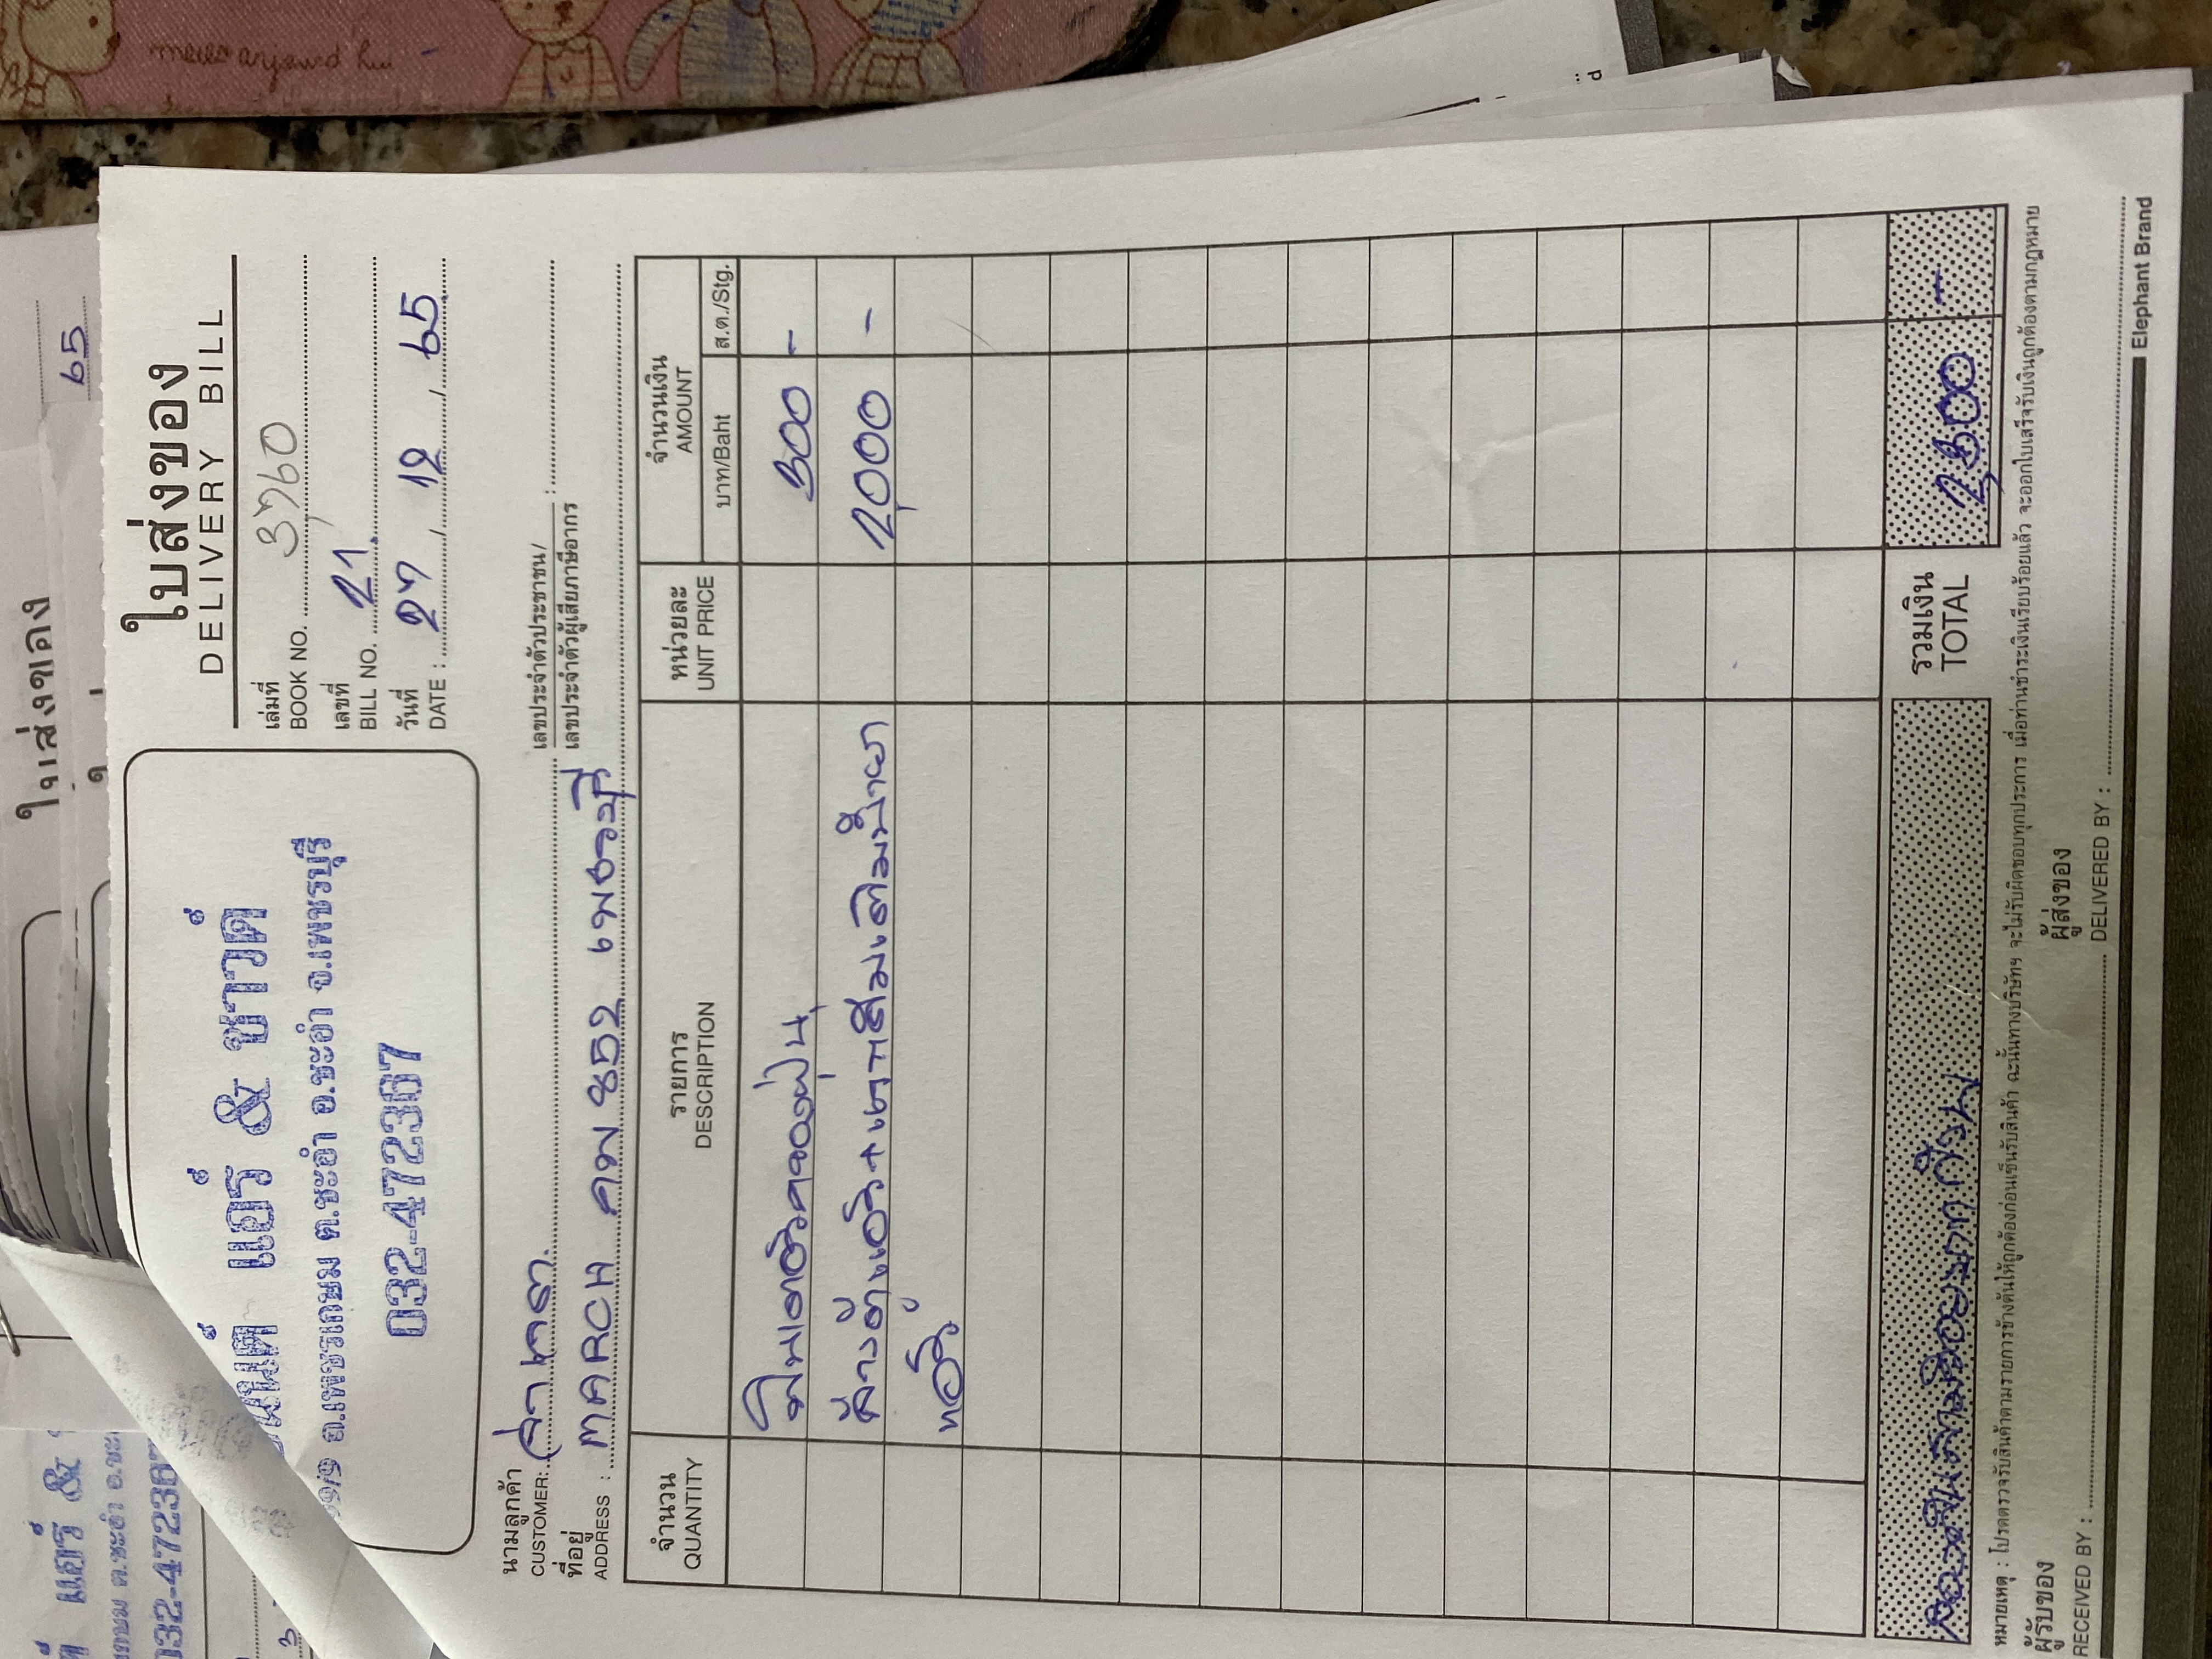 ใบส่งของ
DELIVERY BILL
เล่มที่
BOOK NO. 3760
เลขที่
BILL NO. 21
วันที่
DATE : 27 / 12 / 65
แอร์ & ซาวด์
ถ.เพชรเกษม ต.ชะอำ อ.ชะอำ จ.เพชรบุรี
032-472367
นามลูกค้า
CUSTOMER:
เลขประจำตัวประชาชน/
เลขประจำตัวผู้เสียภาษีอากร :
ที่อยู่
ADDRESS : MARCH 852 เพชรบุรี
จำนวน
QUANTITY
รายการ
DESCRIPTION
หน่วยละ
UNIT PRICE
จำนวนเงิน
AMOUNT
บาท/Baht
ส.ต./Stg.
300 -
ล้างตู้แอร์ +
2,000 -
รวมเงิน
TOTAL
2,300 -
หมายเหตุ : โปรดตรวจรับสินค้าตามรายการข้างต้นให้ถูกต้องก่อนเซ็นรับสินค้า ฉะนั้นทางบริษัทฯ จะไม่รับผิดชอบทุกประการ เมื่อท่านชำระเงินเรียบร้อยแล้ว จะออกใบเสร็จรับเงินถูกต้องตามกฎหมาย
ผู้รับของ
RECEIVED BY :
ผู้ส่งของ
DELIVERED BY :
Elephant Brand
ใบส่งของ
65
แอร์ &
032-472367